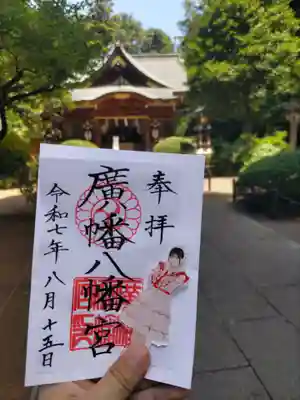 奉拝
廣幡八幡宮
令和七年八月十五日